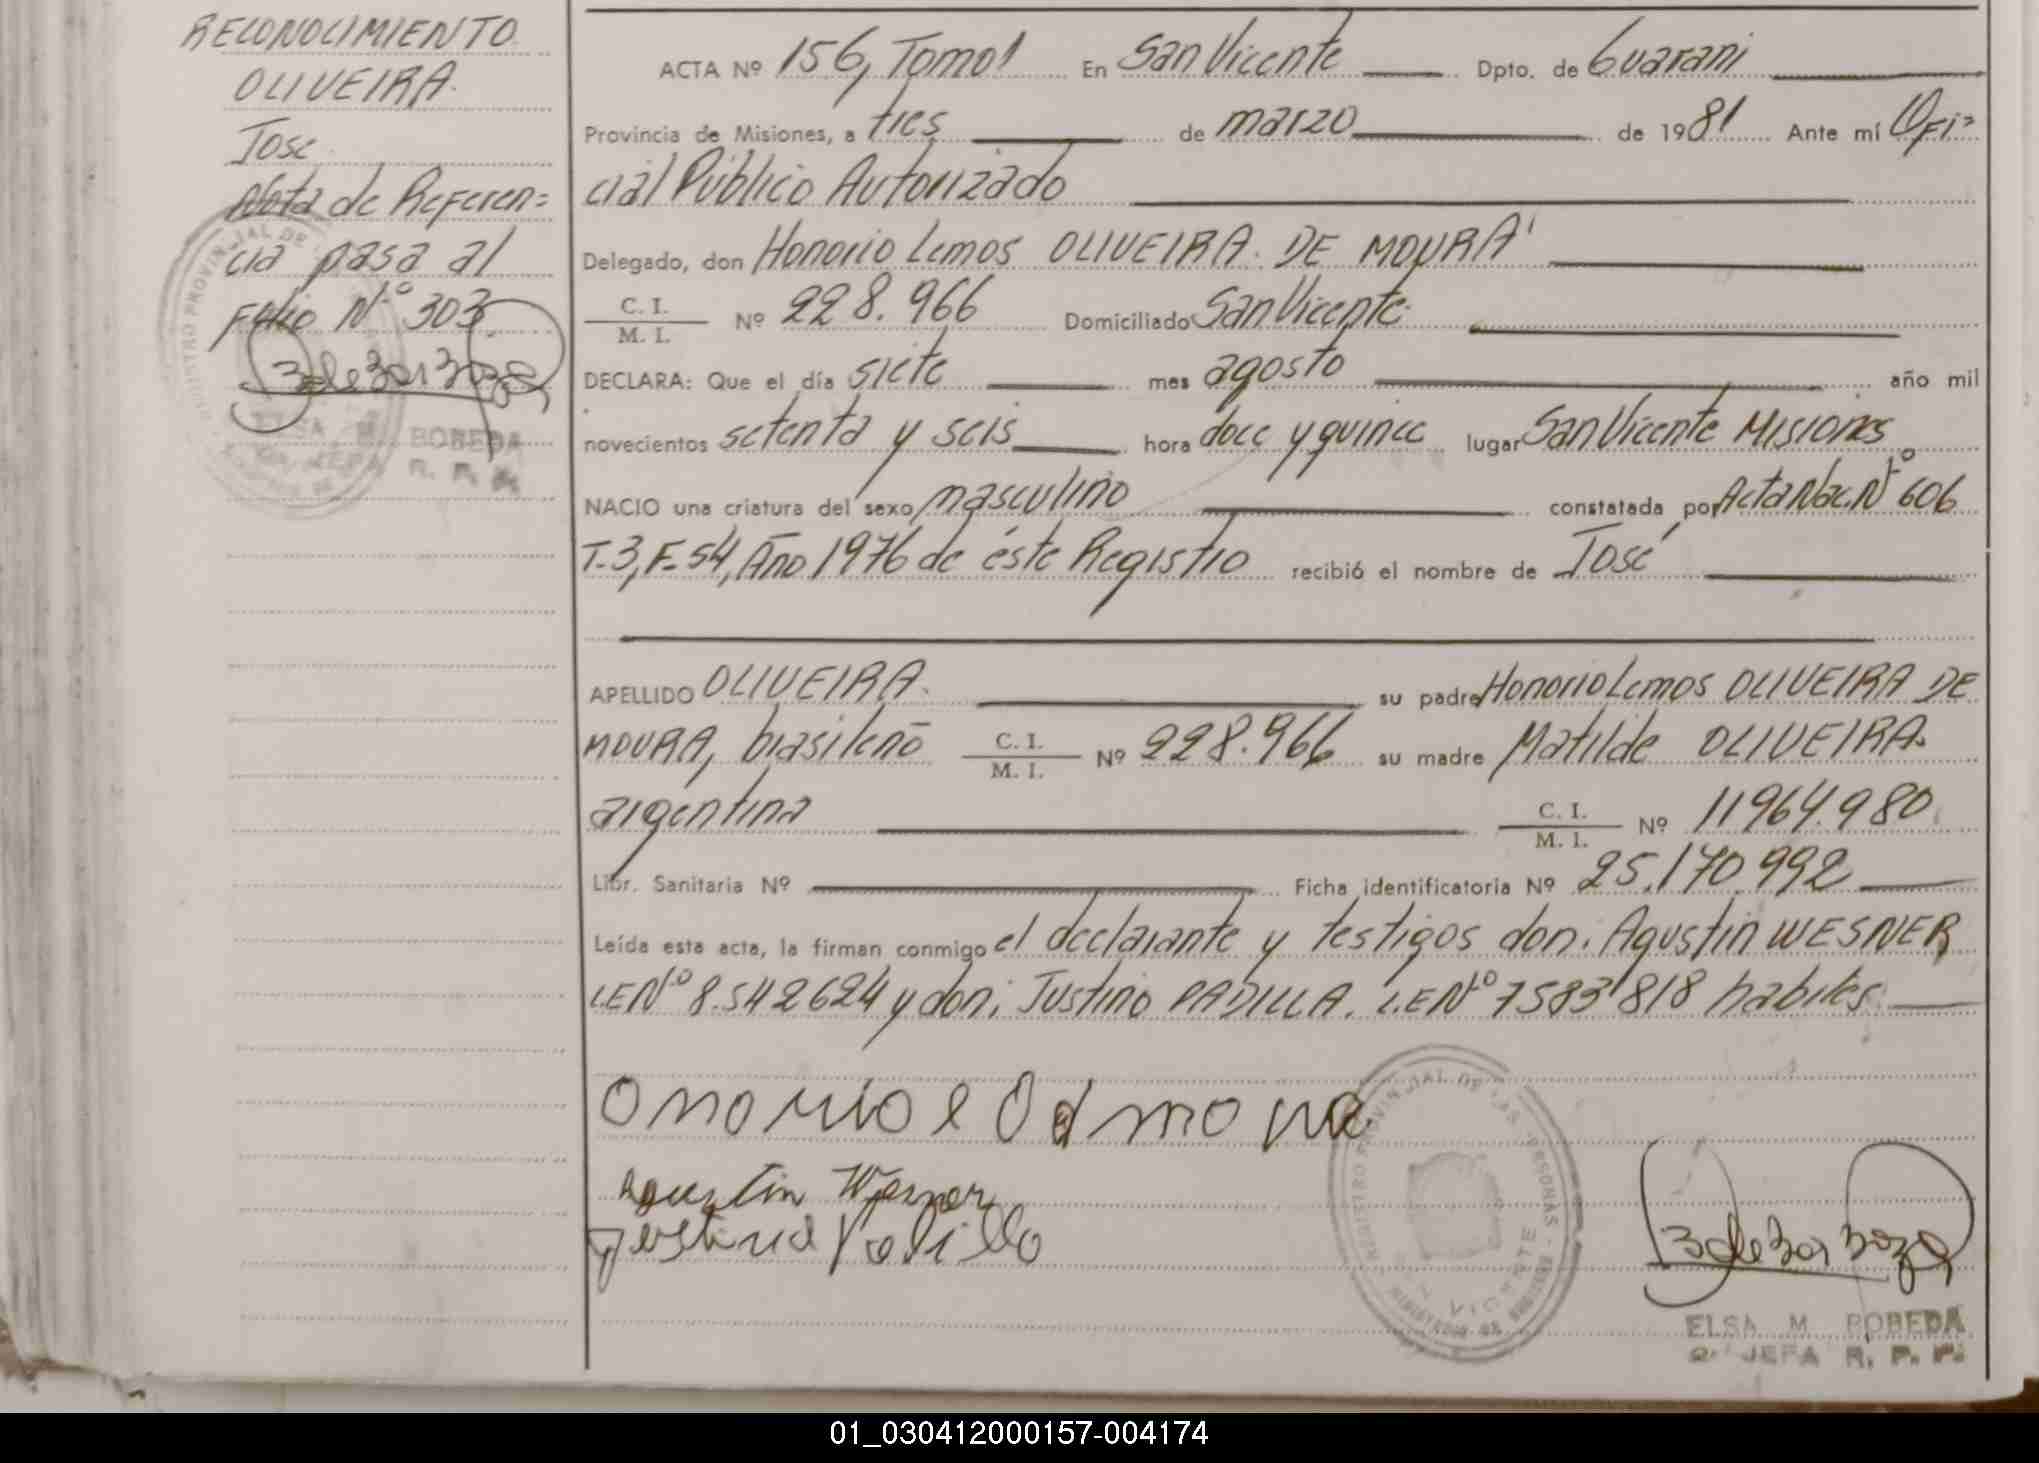 RECONOCIMIENTO
OLIVEIRA.
José
Nota de Referen=
cia pasa al
Folio Nº 303.
ELSA M. BOBEDA
R. P. P.
ACTA Nº 156, Tomo 1 En San Vicente Dpto. de Guarani
Provincia de Misiones, a tres de marzo de 1981 Ante mí Ofi=
cial Público Autorizado
Delegado, don Honorio Lemos OLIVEIRA. DE MOURA
C. I.
M. I. Nº 228.966 Domiciliado San Vicente.
DECLARA: Que el día siete mes agosto año mil
novecientos setenta y seis hora doce y quince lugar San Vicente Misiones
NACIO una criatura del sexo masculino constatada por Acta Nac. Nº 606
T-3, F-54, Año 1976 de éste Registro recibió el nombre de José
APELLIDO OLIVEIRA. su padre Honorio Lemos OLIVEIRA DE
MOURA, brasileño C. I.
M. I. Nº 228.966 su madre Matilde OLIVEIRA.
argentina C. I.
M. I. Nº 11964.980
Libr. Sanitaria Nº Ficha identificatoria Nº 25.170.992
Leída esta acta, la firman conmigo el declarante y testigos don: Agustin WESNER
L.E Nº 8.542624 y don: Justino PADILLA. L.E Nº 7583818 habiles.
Agustin Wesner
Justino Padillo
REGISTRO PROVINJIAL DE LAS PERSONAS
VICENTE
ELSA M BOBEDA
2º JEFA R. P. P.
01_030412000157-004174